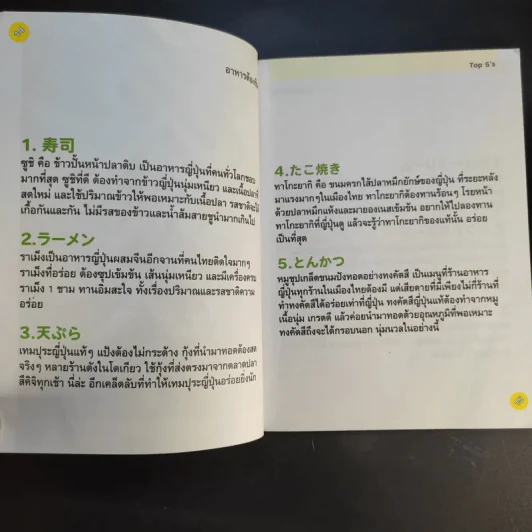 อาหารต้อง
1. 寿司
ซูชิ คือ ข้าวปั้นหน้าปลาดิบ เป็นอาหารญี่ปุ่นที่คนทั่วโลกชอบ
มากที่สุด ซูชิที่ดี ต้องทำจากข้าวญี่ปุ่นนุ่มเหนียว และเนื้อปลาที่
สดใหม่ และใช้ปริมาณข้าวให้พอเหมาะกับเนื้อปลา รสชาติจะไม่
เกื้อกันและกัน ไม่มีรสของข้าวและน้ำส้มสายชูนำมากเกินไป
2.ラーメン
ราเม็งเป็นอาหารญี่ปุ่นผสมจีนอีกจานที่คนไทยติดใจมากๆ
ราเม็งที่อร่อย ต้องซุปเข้มข้น เส้นนุ่มเหนียว และมีเครื่องครบ
ราเม็ง 1 ชาม ทานอิ่มสะใจ ทั้งเรื่องปริมาณและรสชาติความ
อร่อย
3.天ぷら
เทมปุระญี่ปุ่นแท้ๆ แป้งต้องไม่กระด้าง กุ้งที่นำมาทอดต้องสด
จริงๆ หลายร้านดังในโตเกียว ใช้กุ้งที่ส่งตรงมาจากตลาดปลา
สึคิจิทุกเช้า นี่ล่ะ อีกเคล็ดลับที่ทำให้เทมปุระญี่ปุ่นอร่อยยิ่งนัก
Top 5's
4.たこ焼き
ทาโกะยากิ คือ ขนมครกไส้ปลาหมึกยักษ์ของญี่ปุ่น ที่ระยะหลัง
มาแรงมากๆในเมืองไทย ทาโกะยากิต้องทานร้อนๆ โรยหน้า
ด้วยปลาหมึกแห้งและมายองเนสเข้มข้น อยากให้ไปลองทาน
ทาโกะยากิที่ญี่ปุ่นดู แล้วจะรู้ว่าทาโกะยากิของแท้นั้น อร่อย
เป็นที่สุด
5.とんかつ
หมูชุปเกล็ดขนมปังทอดอย่างทงคัตสึ เป็นเมนูที่ร้านอาหาร
ญี่ปุ่นทุกร้านในเมืองไทยต้องมี แต่เสียดายที่มีเพียงไม่กี่ร้านที่
ทำทงคัตสึได้อร่อยเท่าที่ญี่ปุ่น ทงคัตสึญี่ปุ่นแท้ต้องทำจากหมู
เนื้อนุ่ม เกรดดี แล้วค่อยนำมาทอดด้วยอุณหภูมิที่พอเหมาะ
ทงคัตสึถึงจะได้กรอบนอก นุ่มนวลในอย่างนี้